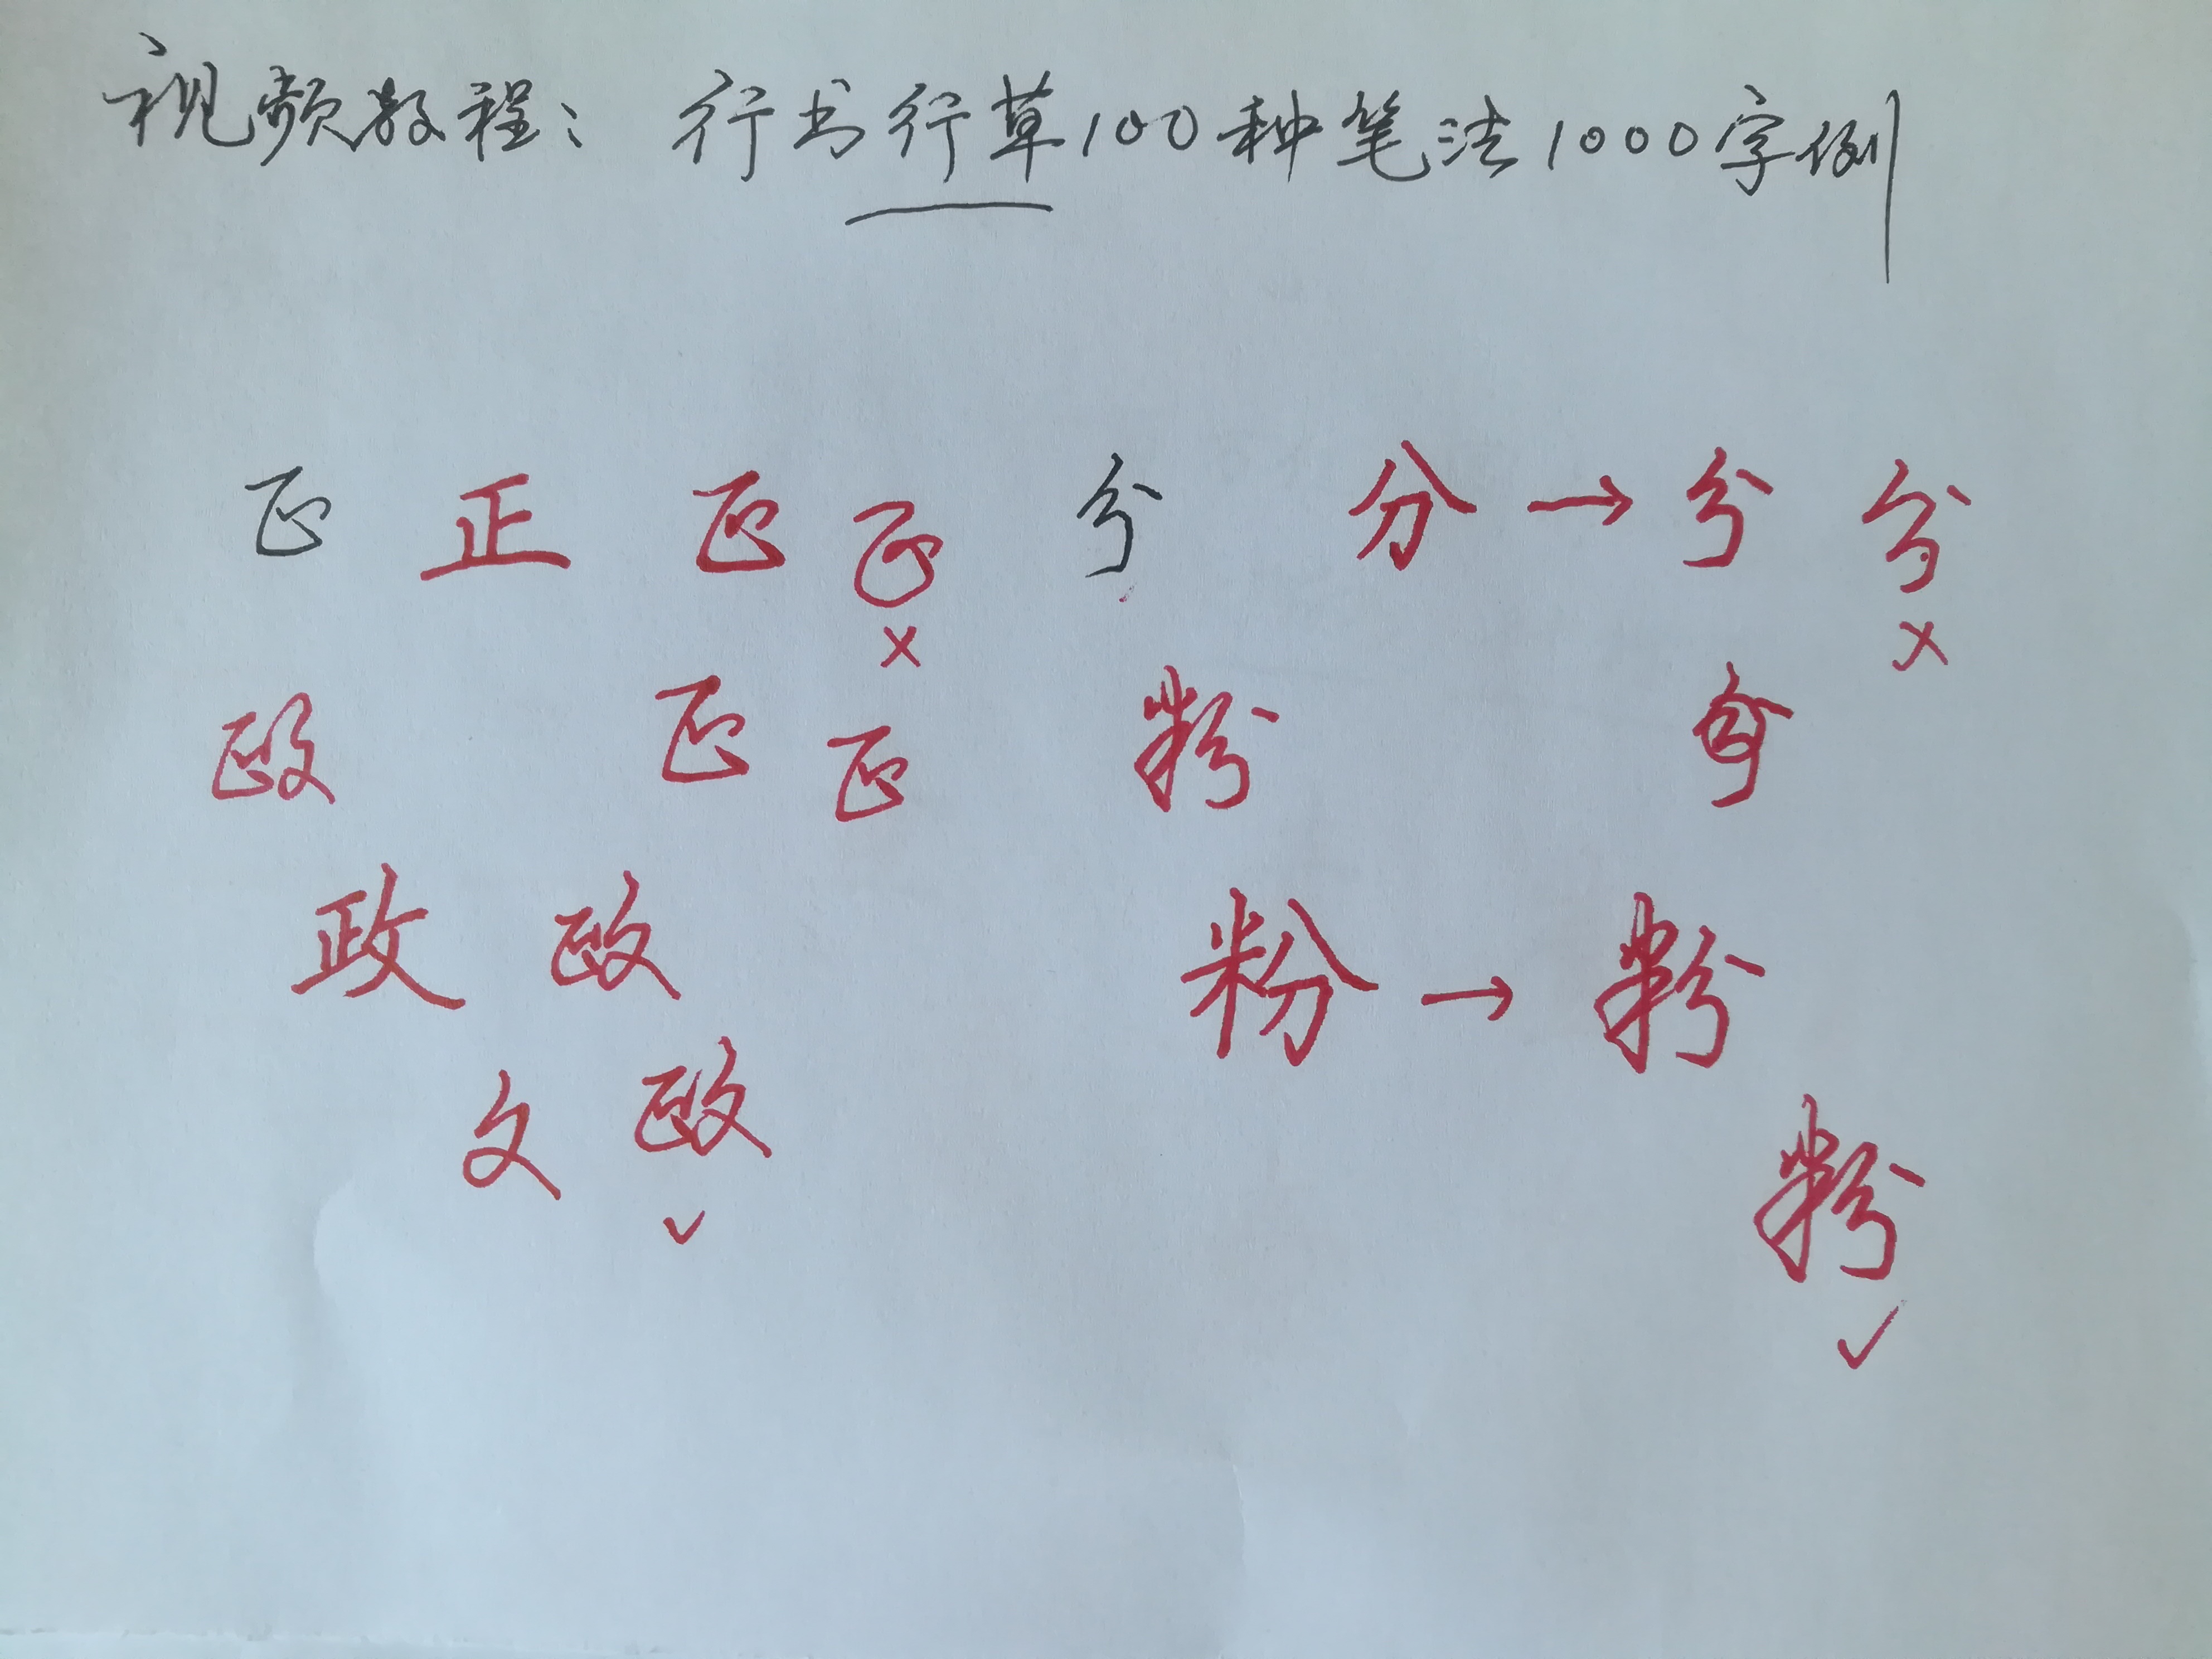 视频教程：行书行草100种笔法1000字例
正 正 正 正 分 分 → 分 分
× ×
政 正 正 粉 分
政 政 粉 → 粉
攵 政 粉
✓ ✓